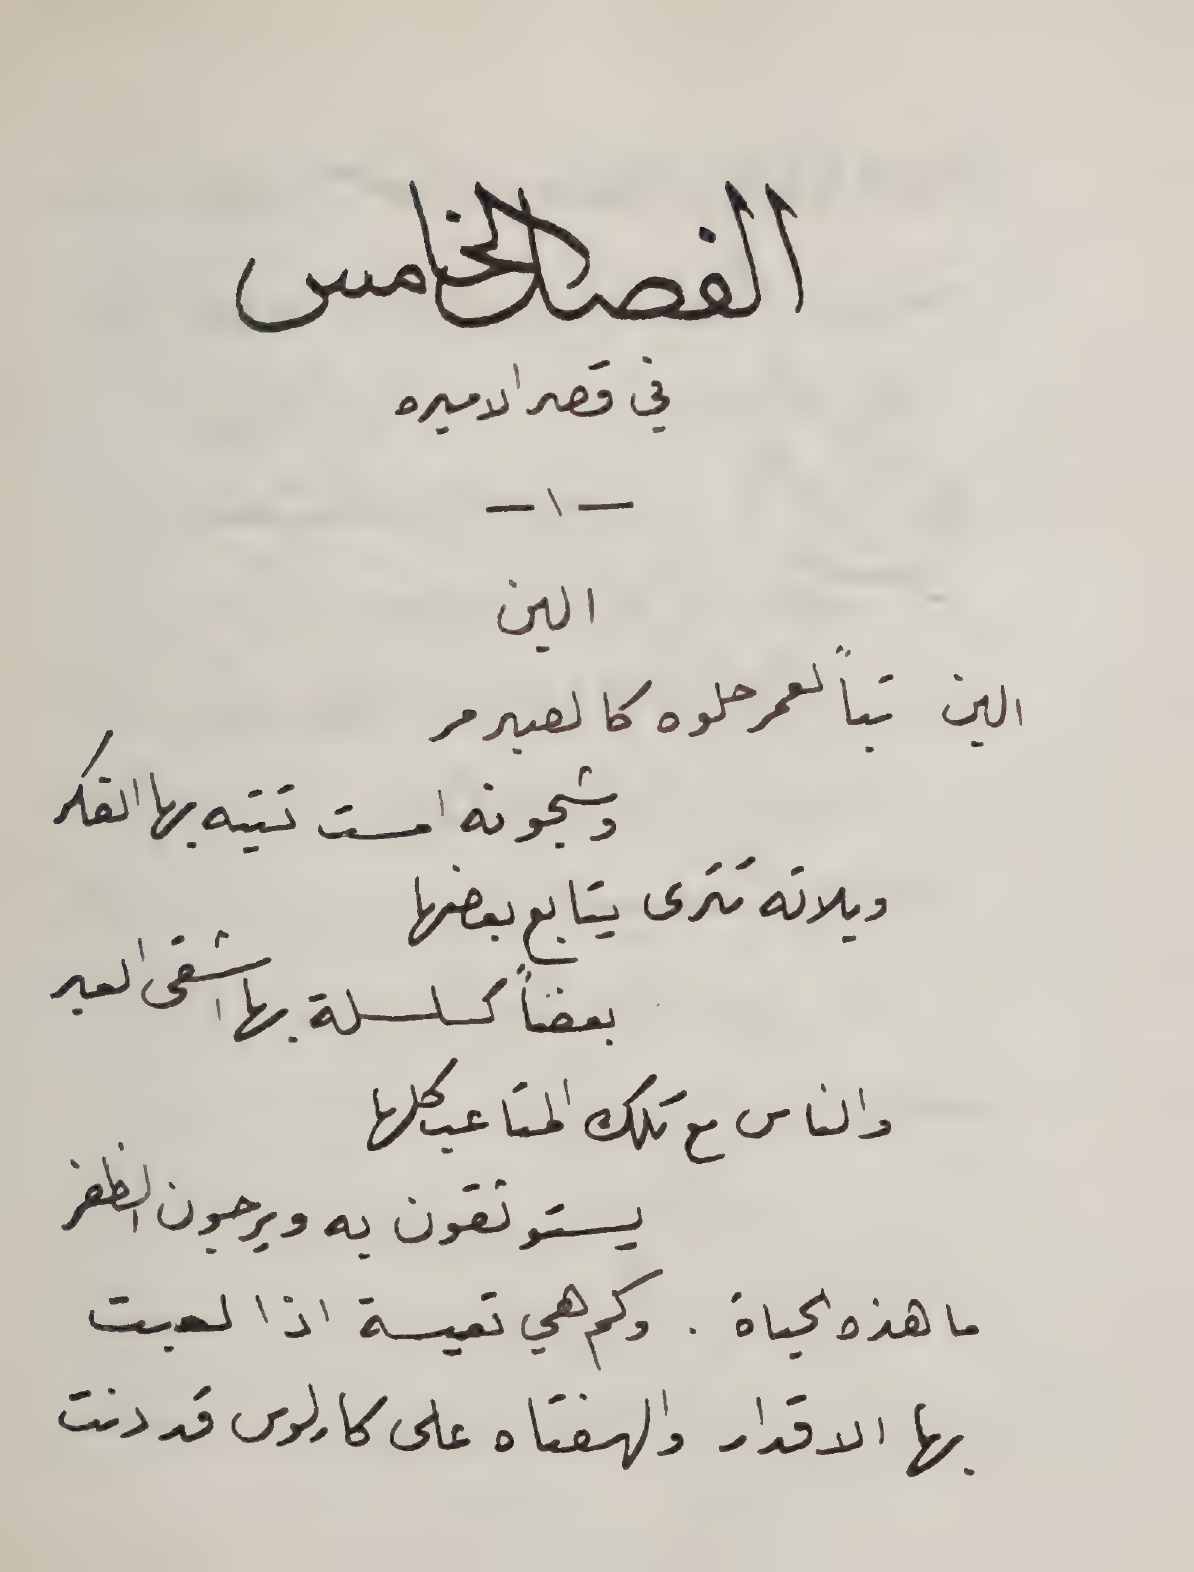 الفصل الخامس
في قصر الاميره
— ١ —
الين
الين تباً لعمر حلوه كالصبر مر
وشجونه امست تتيه بها الفكر
ويلاته تترى يتابع بعضها
بعضاً كسلسلة بها اشقى العبر
والناس مع تلك المتاعب كلها
يستوثقون به ويرجون الظفر
ما هذه الحياة . وكم هي تعيسة اذا لعبت
بها الاقدار والهفتاه على كارلوس قد دنت